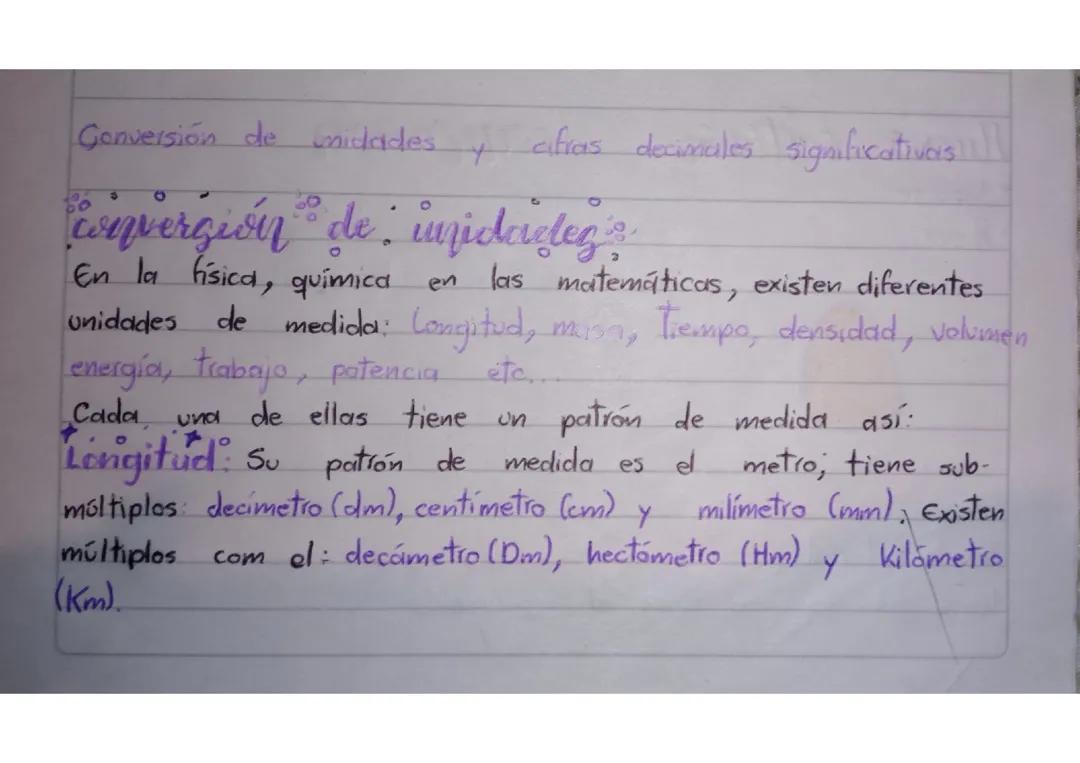 Conversión de unidades y cifras decimales significativas
conversión de unidades:
En la física, química en las matemáticas, existen diferentes
unidades de medida: Longitud, masa, Tiempo, densidad, volumen
energía, trabajo, potencia etc...
Cada una de ellas tiene un patrón de medida así:
Longitud: Su patrón de medida es el metro; tiene sub-
múltiplos: decímetro (dm), centímetro (cm) y milímetro (mm). Existen
múltiplos com el: decámetro (Dm), hectómetro (Hm) y Kilómetro
(Km).